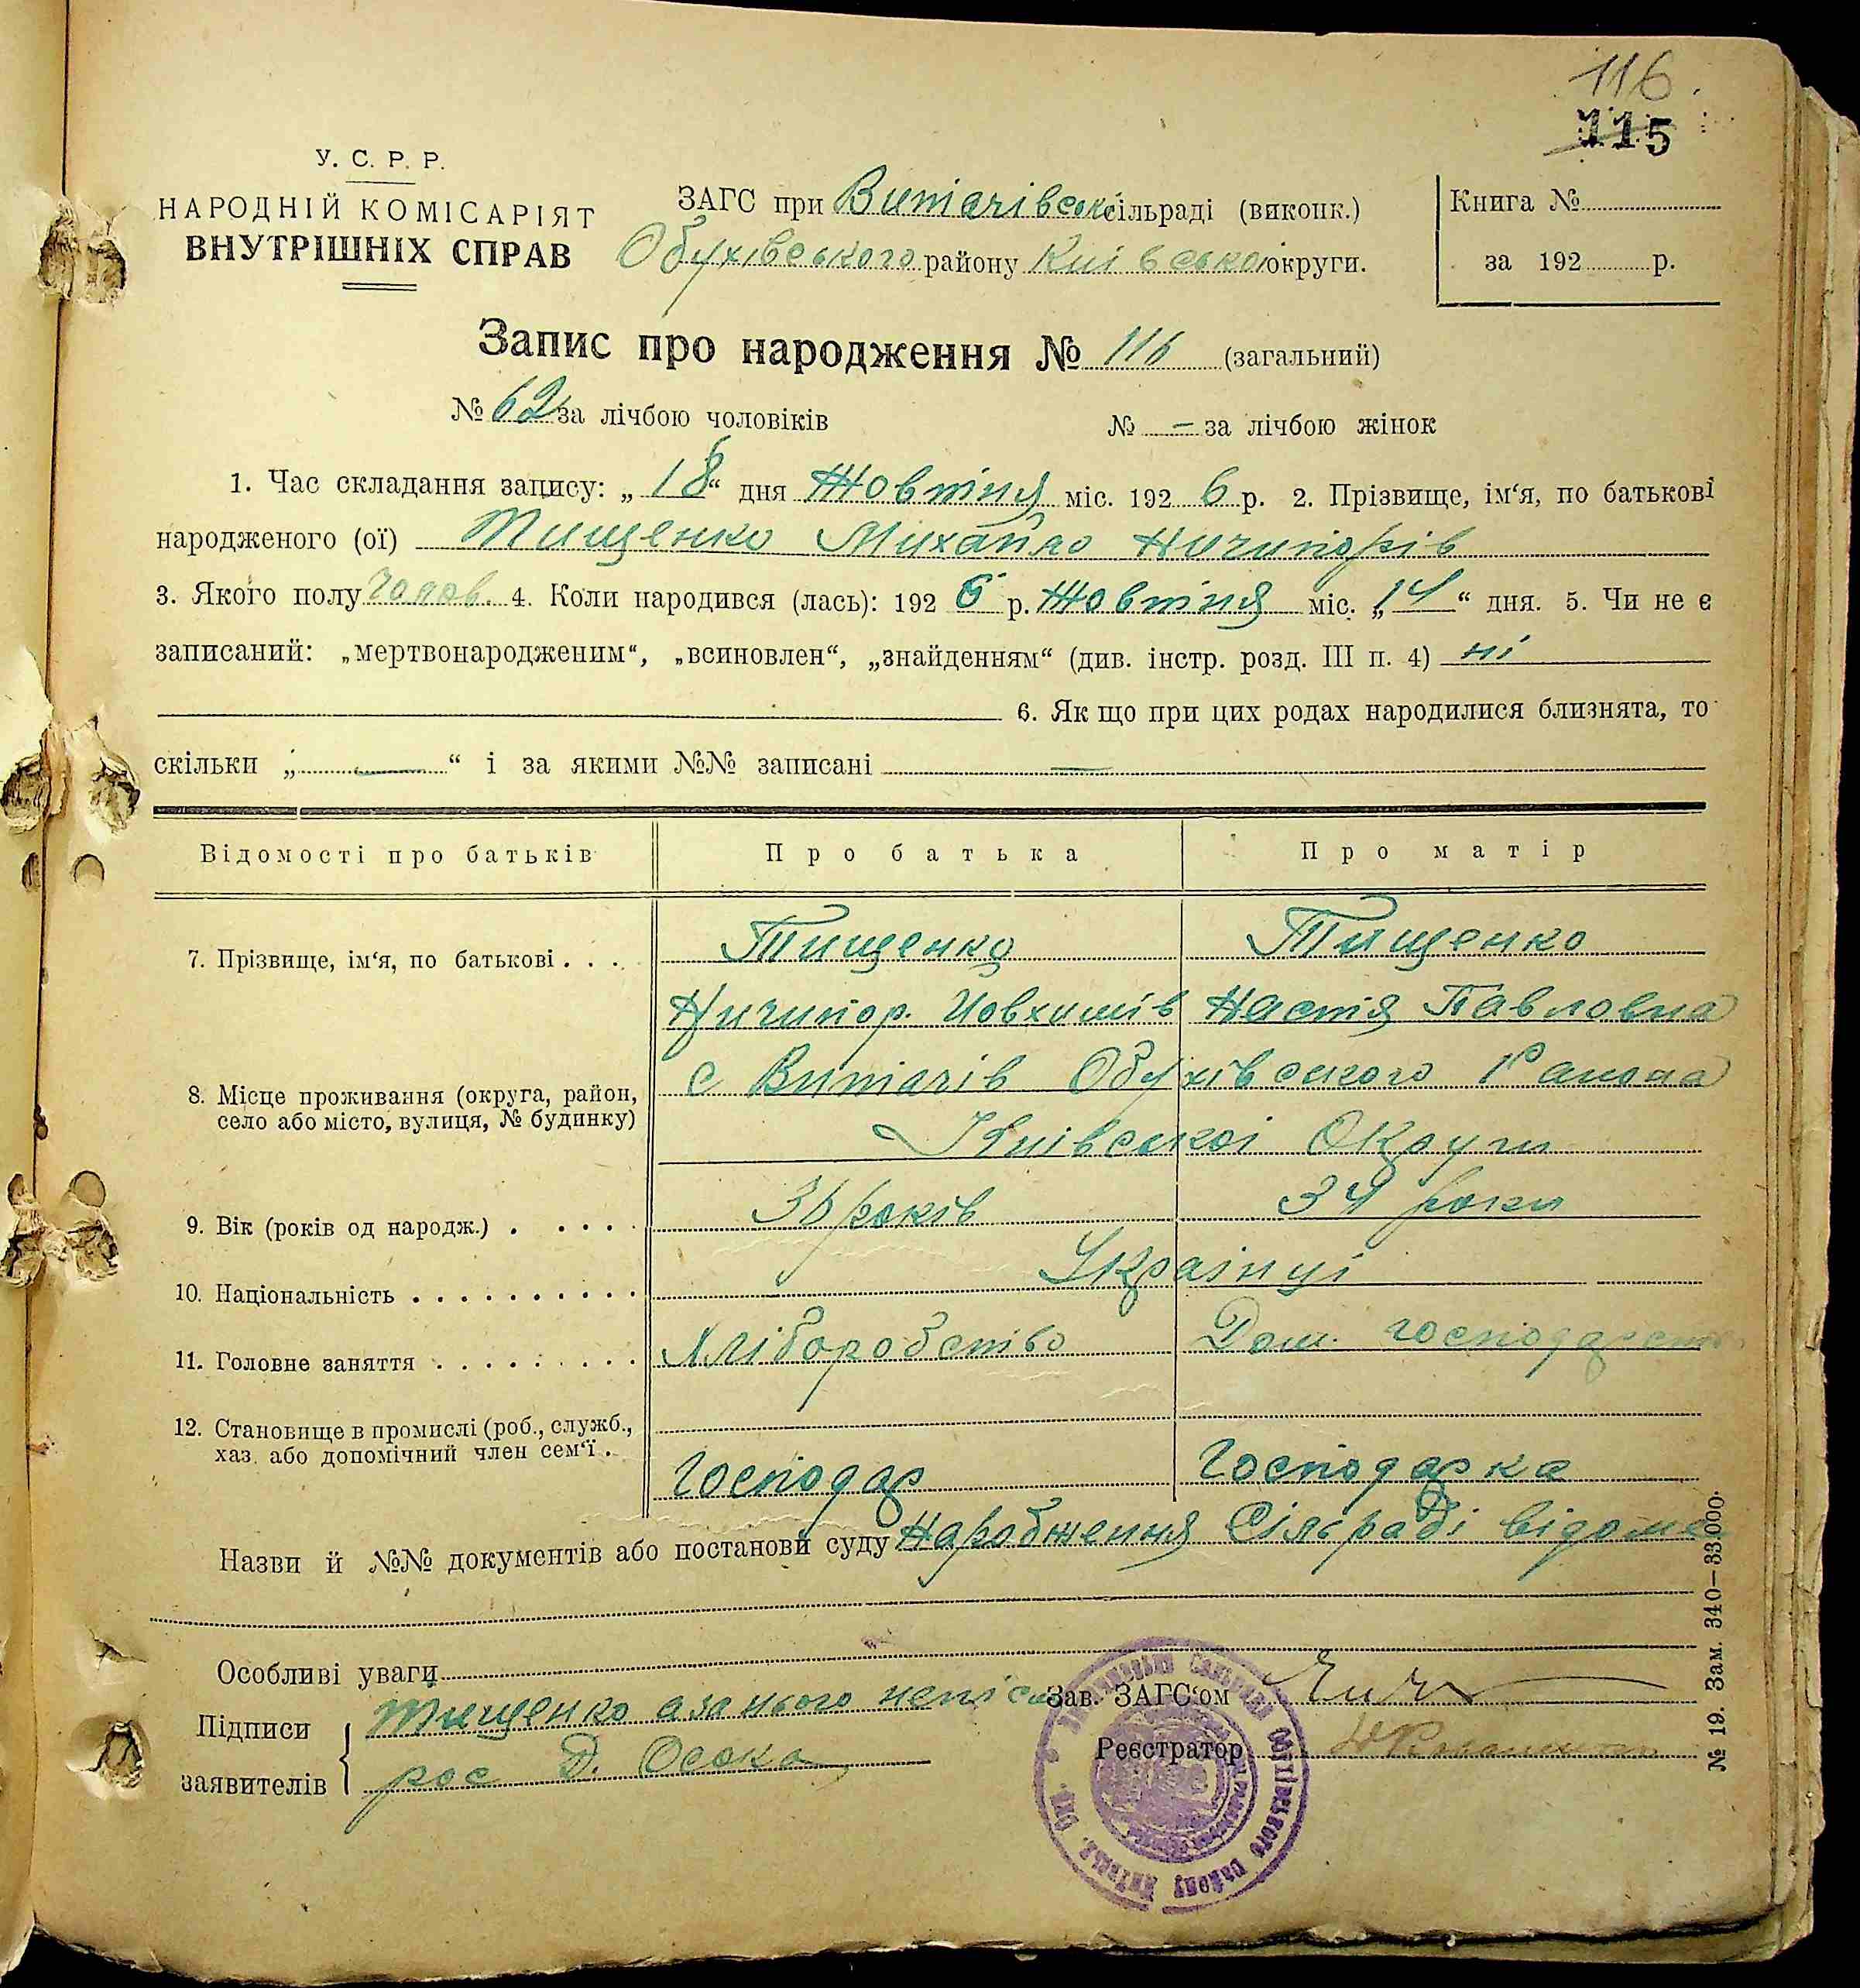 116.
115
У. С. Р. Р.
НАРОДНІЙ КОМІСАРІЯТ
ВНУТРІШНІХ СПРАВ
ЗАГС при Витачівськ сільраді (виконк.)
Обухівського району Київської округи.
Книга №
за 192 р.
Запис про народження № 116 (загальний)
№ 62 за лічбою чоловіків № – за лічбою жінок
1. Час складання запису: „ 18 “ дня Жовтня міс. 192 6 р. 2. Прізвище, ім‘я, по батькові
народженого (ої) Тищенко Михайло Ничипорів
3. Якого полу Чолов. 4. Коли народився (лась): 192 6 р. Жовтня міс. „ 14 “ дня. 5. Чи не є
записаний: „мертвонародженим“, „всиновлен“, „знайденням“ (див. інстр. розд. III п. 4) ні
6. Як що при цих родах народилися близнята, то
скільки „ — “ і за якими №№ записані —
Відомості про батьків Про батька Про матір
7. Прізвище, ім‘я, по батькові . . . Тищенко Тищенко
Ничипор. Йовхимів Настя Павловна
8. Місце проживання (округа, район, с Витачів Обухівского Раиона
село або місто, вулиця, № будинку)
Київської Округи
9. Вік (років од народж.) . . . . . 36 років 34 роки
10. Національність . . . . . . . . . . Українці
11. Головне заняття . . . . . . . . . Хліборобство Дом. господарство
12. Становище в промислі (роб., служб.,
хаз. або допомічний член сем‘ї . Господар Господарка
Назви й №№ документів або постанови суду Народження Сільраді відоме
Особливі уваги
Підписи
заявителів
Тищенко а за нього непісьм
рос Д. Осока
Зав. ЗАГС‘ом
Реєстратор
№ 19. Зам. 340–33.000.